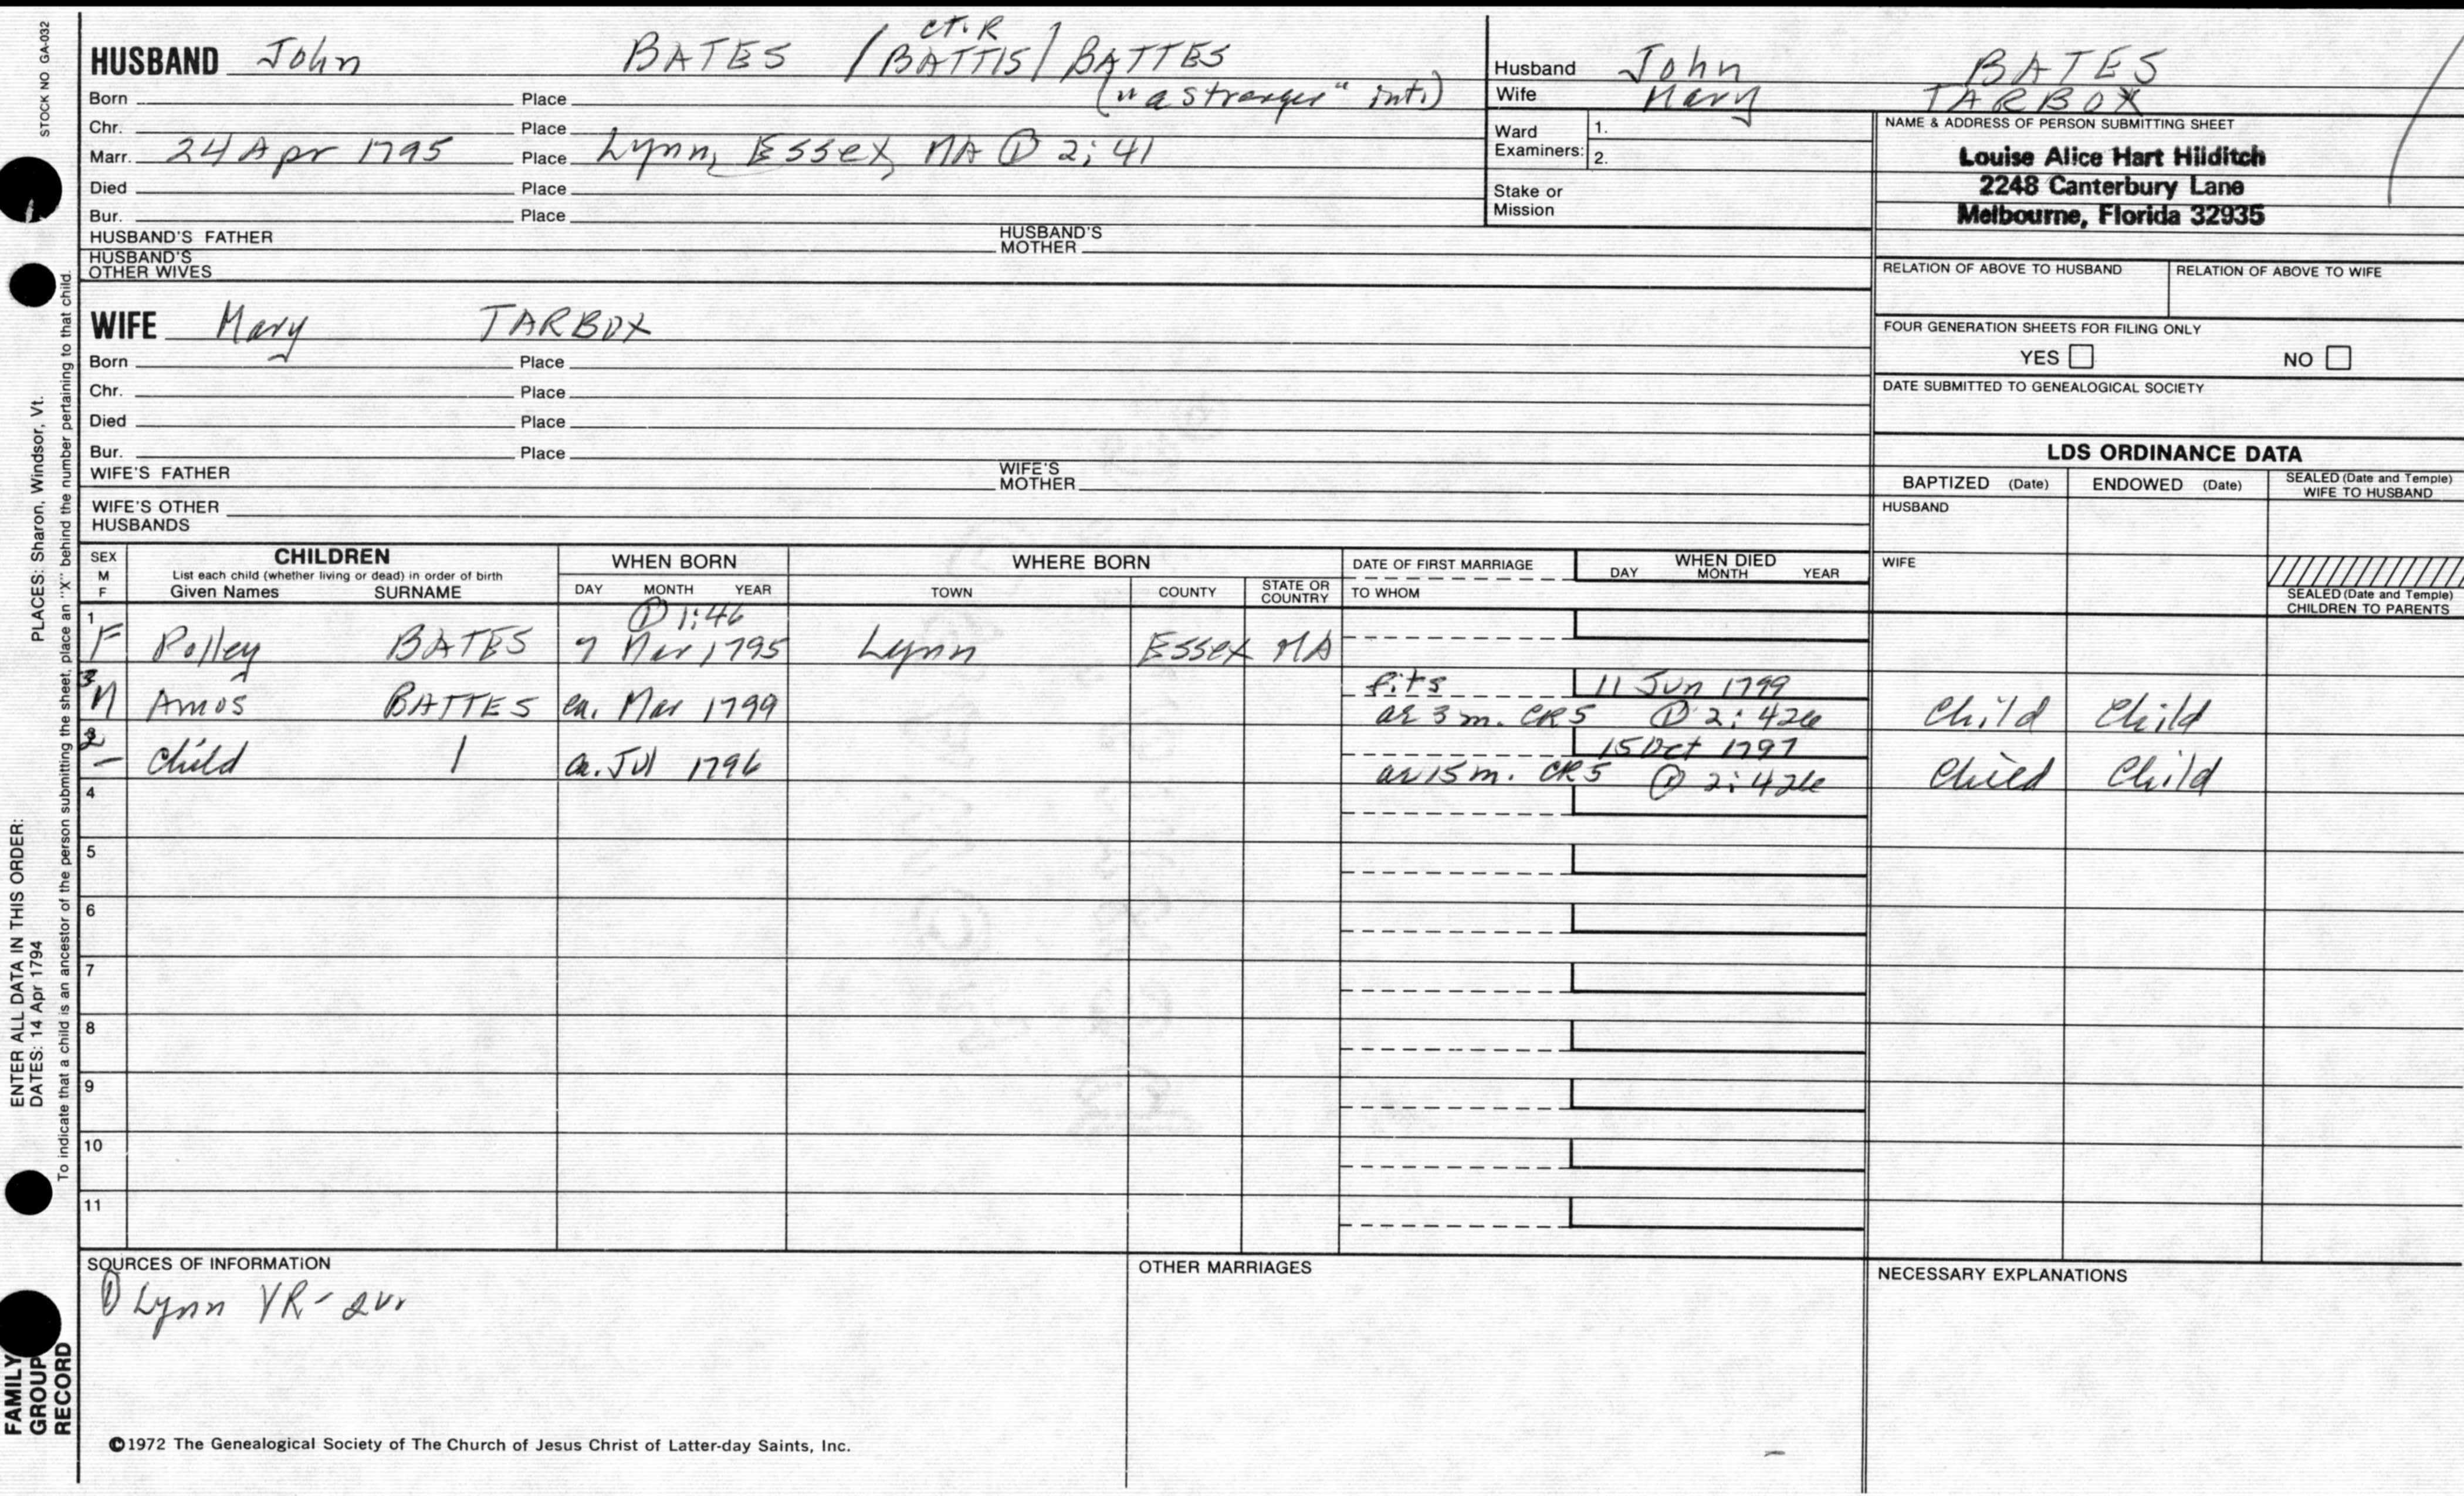 STOCK NO GA-032
ct. R
HUSBAND John BATES / BATTIS / BATTES
("a stranger" int.)
Born Place
Chr. Place
Marr. 24 Apr 1795 Place Lynn, Essex, MA ① 2:41
Died Place
Bur. Place
HUSBAND'S FATHER HUSBAND'S MOTHER
HUSBAND'S OTHER WIVES
WIFE Mary TARBOX
Born Place
Chr. Place
Died Place
Bur. Place
WIFE'S FATHER WIFE'S MOTHER
WIFE'S OTHER HUSBANDS
Husband John BATES
Wife Mary TARBOX
Ward Examiners: 1.
2.
Stake or Mission
NAME & ADDRESS OF PERSON SUBMITTING SHEET
Louise Alice Hart Hilditch
2248 Canterbury Lane
Melbourne, Florida 32935
RELATION OF ABOVE TO HUSBAND RELATION OF ABOVE TO WIFE
FOUR GENERATION SHEETS FOR FILING ONLY
YES NO
DATE SUBMITTED TO GENEALOGICAL SOCIETY
LDS ORDINANCE DATA
BAPTIZED (Date) ENDOWED (Date) SEALED (Date and Temple) WIFE TO HUSBAND
HUSBAND
WIFE
SEALED (Date and Temple) CHILDREN TO PARENTS
SEX M F
CHILDREN
List each child (whether living or dead) in order of birth
Given Names SURNAME
WHEN BORN
DAY MONTH YEAR
WHERE BORN
TOWN COUNTY STATE OR COUNTRY
DATE OF FIRST MARRIAGE
TO WHOM
WHEN DIED
DAY MONTH YEAR
① 1:46
1 F Polley BATES 7 Mar 1795 Lynn Essex MA
fits 11 Jun 1799
3 M Amos BATTES ca. Mar 1799 ae 3 m. CR5 ① 2:426 Child Child
15 Oct 1797
2 – Child 1 ca. Jul 1796 ae 15 m. CR5 ① 2:426 Child Child
4
5
6
7
8
9
10
11
SOURCES OF INFORMATION
① Lynn VR - 2vr
OTHER MARRIAGES
NECESSARY EXPLANATIONS
©1972 The Genealogical Society of The Church of Jesus Christ of Latter-day Saints, Inc.
ENTER ALL DATA IN THIS ORDER:
DATES: 14 Apr 1794 PLACES: Sharon, Windsor, Vt.
To indicate that a child is an ancestor of the person submitting the sheet, place an "X" behind the number pertaining to that child.
FAMILY
GROUP
RECORD